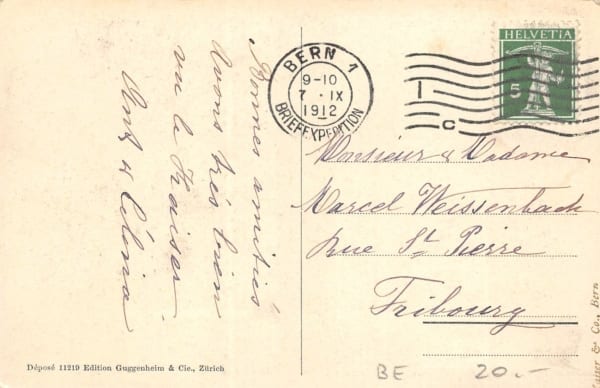 Bonnes amitiés
Avons très bien
vu le Kaiser
HELVETIA
5
BERN 1
9-10
7 · IX
1912
BRIEFEXPEDITION
I
C
Monsieur & Madame
Marcel Weissenbach
Rue St. Pierre
Fribourg
Déposé 11219 Edition Guggenheim & Cie., Zürich
& Co., Bern
BE 20.-